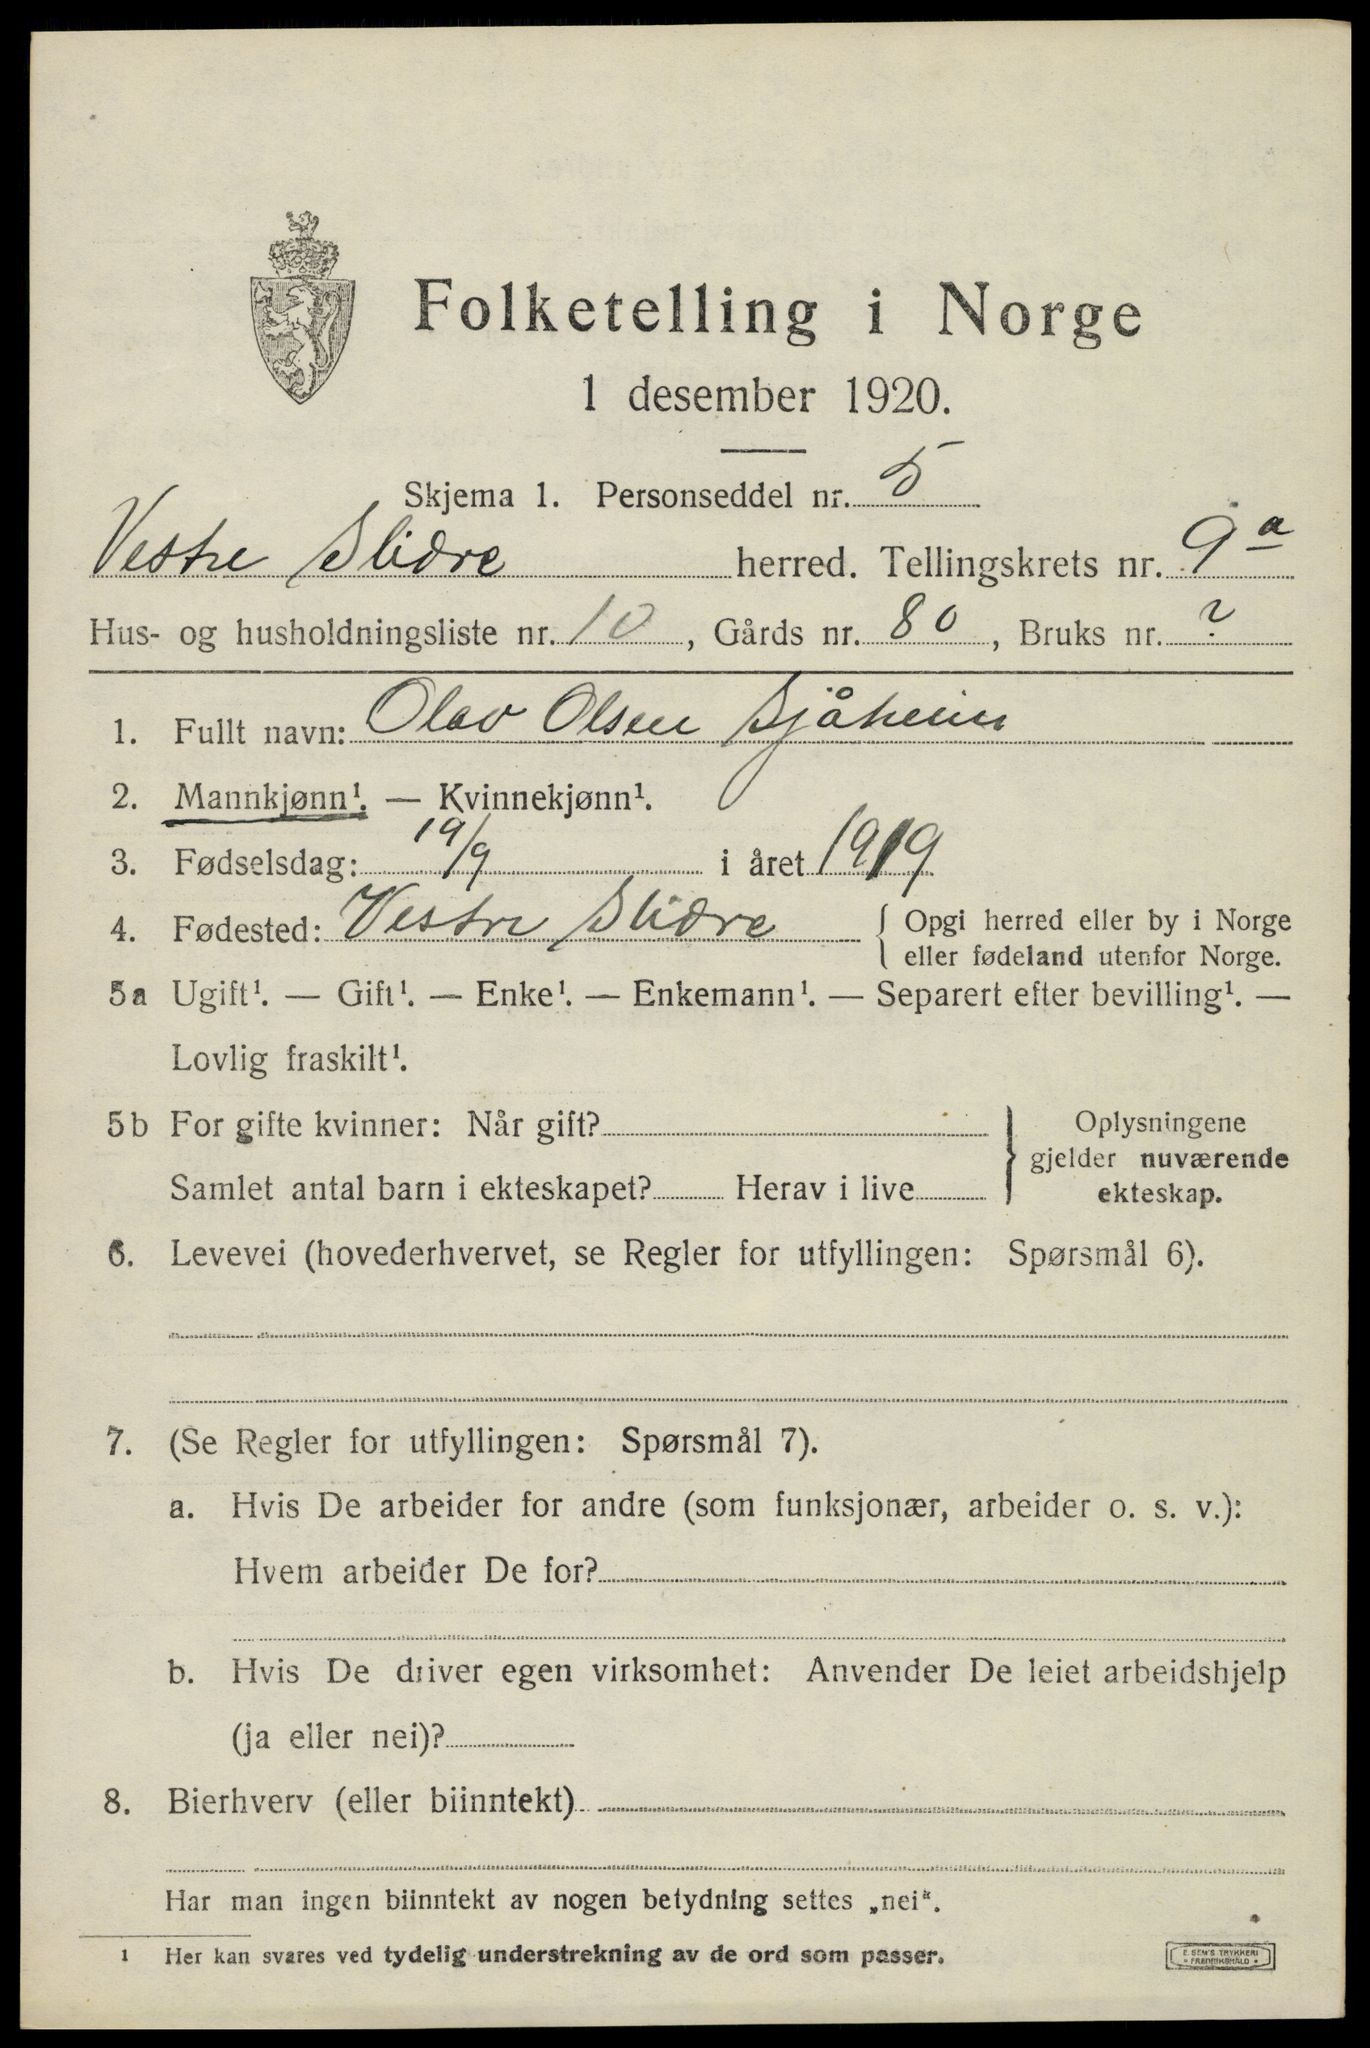 Folketelling i Norge
1 desember 1920.
Skjema 1. Personseddel nr. 5
Vestre Slidre herred. Tellingskrets nr. 9a
Hus- og husholdningsliste nr. 10, Gårds nr. 80, Bruks nr. ?
1. Fullt navn: Olav Olsen Sjåheim
2. Mannkjønn¹. — Kvinnekjønn¹.
3. Fødselsdag: 19/9 i året 1919
4. Fødested: Vestre Slidre { Opgi herred eller by i Norge
eller fødeland utenfor Norge.
5a Ugift¹. — Gift¹. — Enke¹. — Enkemann¹. — Separert efter bevilling¹. —
Lovlig fraskilt¹.
5b For gifte kvinner: Når gift? } Oplysningene
gjelder nuværende
Samlet antal barn i ekteskapet? Herav i live ekteskap.
6. Levevei (hovederhvervet, se Regler for utfyllingen: Spørsmål 6).
7. (Se Regler for utfyllingen: Spørsmål 7).
a. Hvis De arbeider for andre (som funksjonær, arbeider o. s. v.):
Hvem arbeider De for?
b. Hvis De driver egen virksomhet: Anvender De leiet arbeidshjelp
(ja eller nei)?
8. Bierhverv (eller biinntekt)
Har man ingen biinntekt av nogen betydning settes „nei“.
1 Her kan svares ved tydelig understrekning av de ord som passer.
E. SEM'S TRYKKERI
• FREDRIKSHALD •